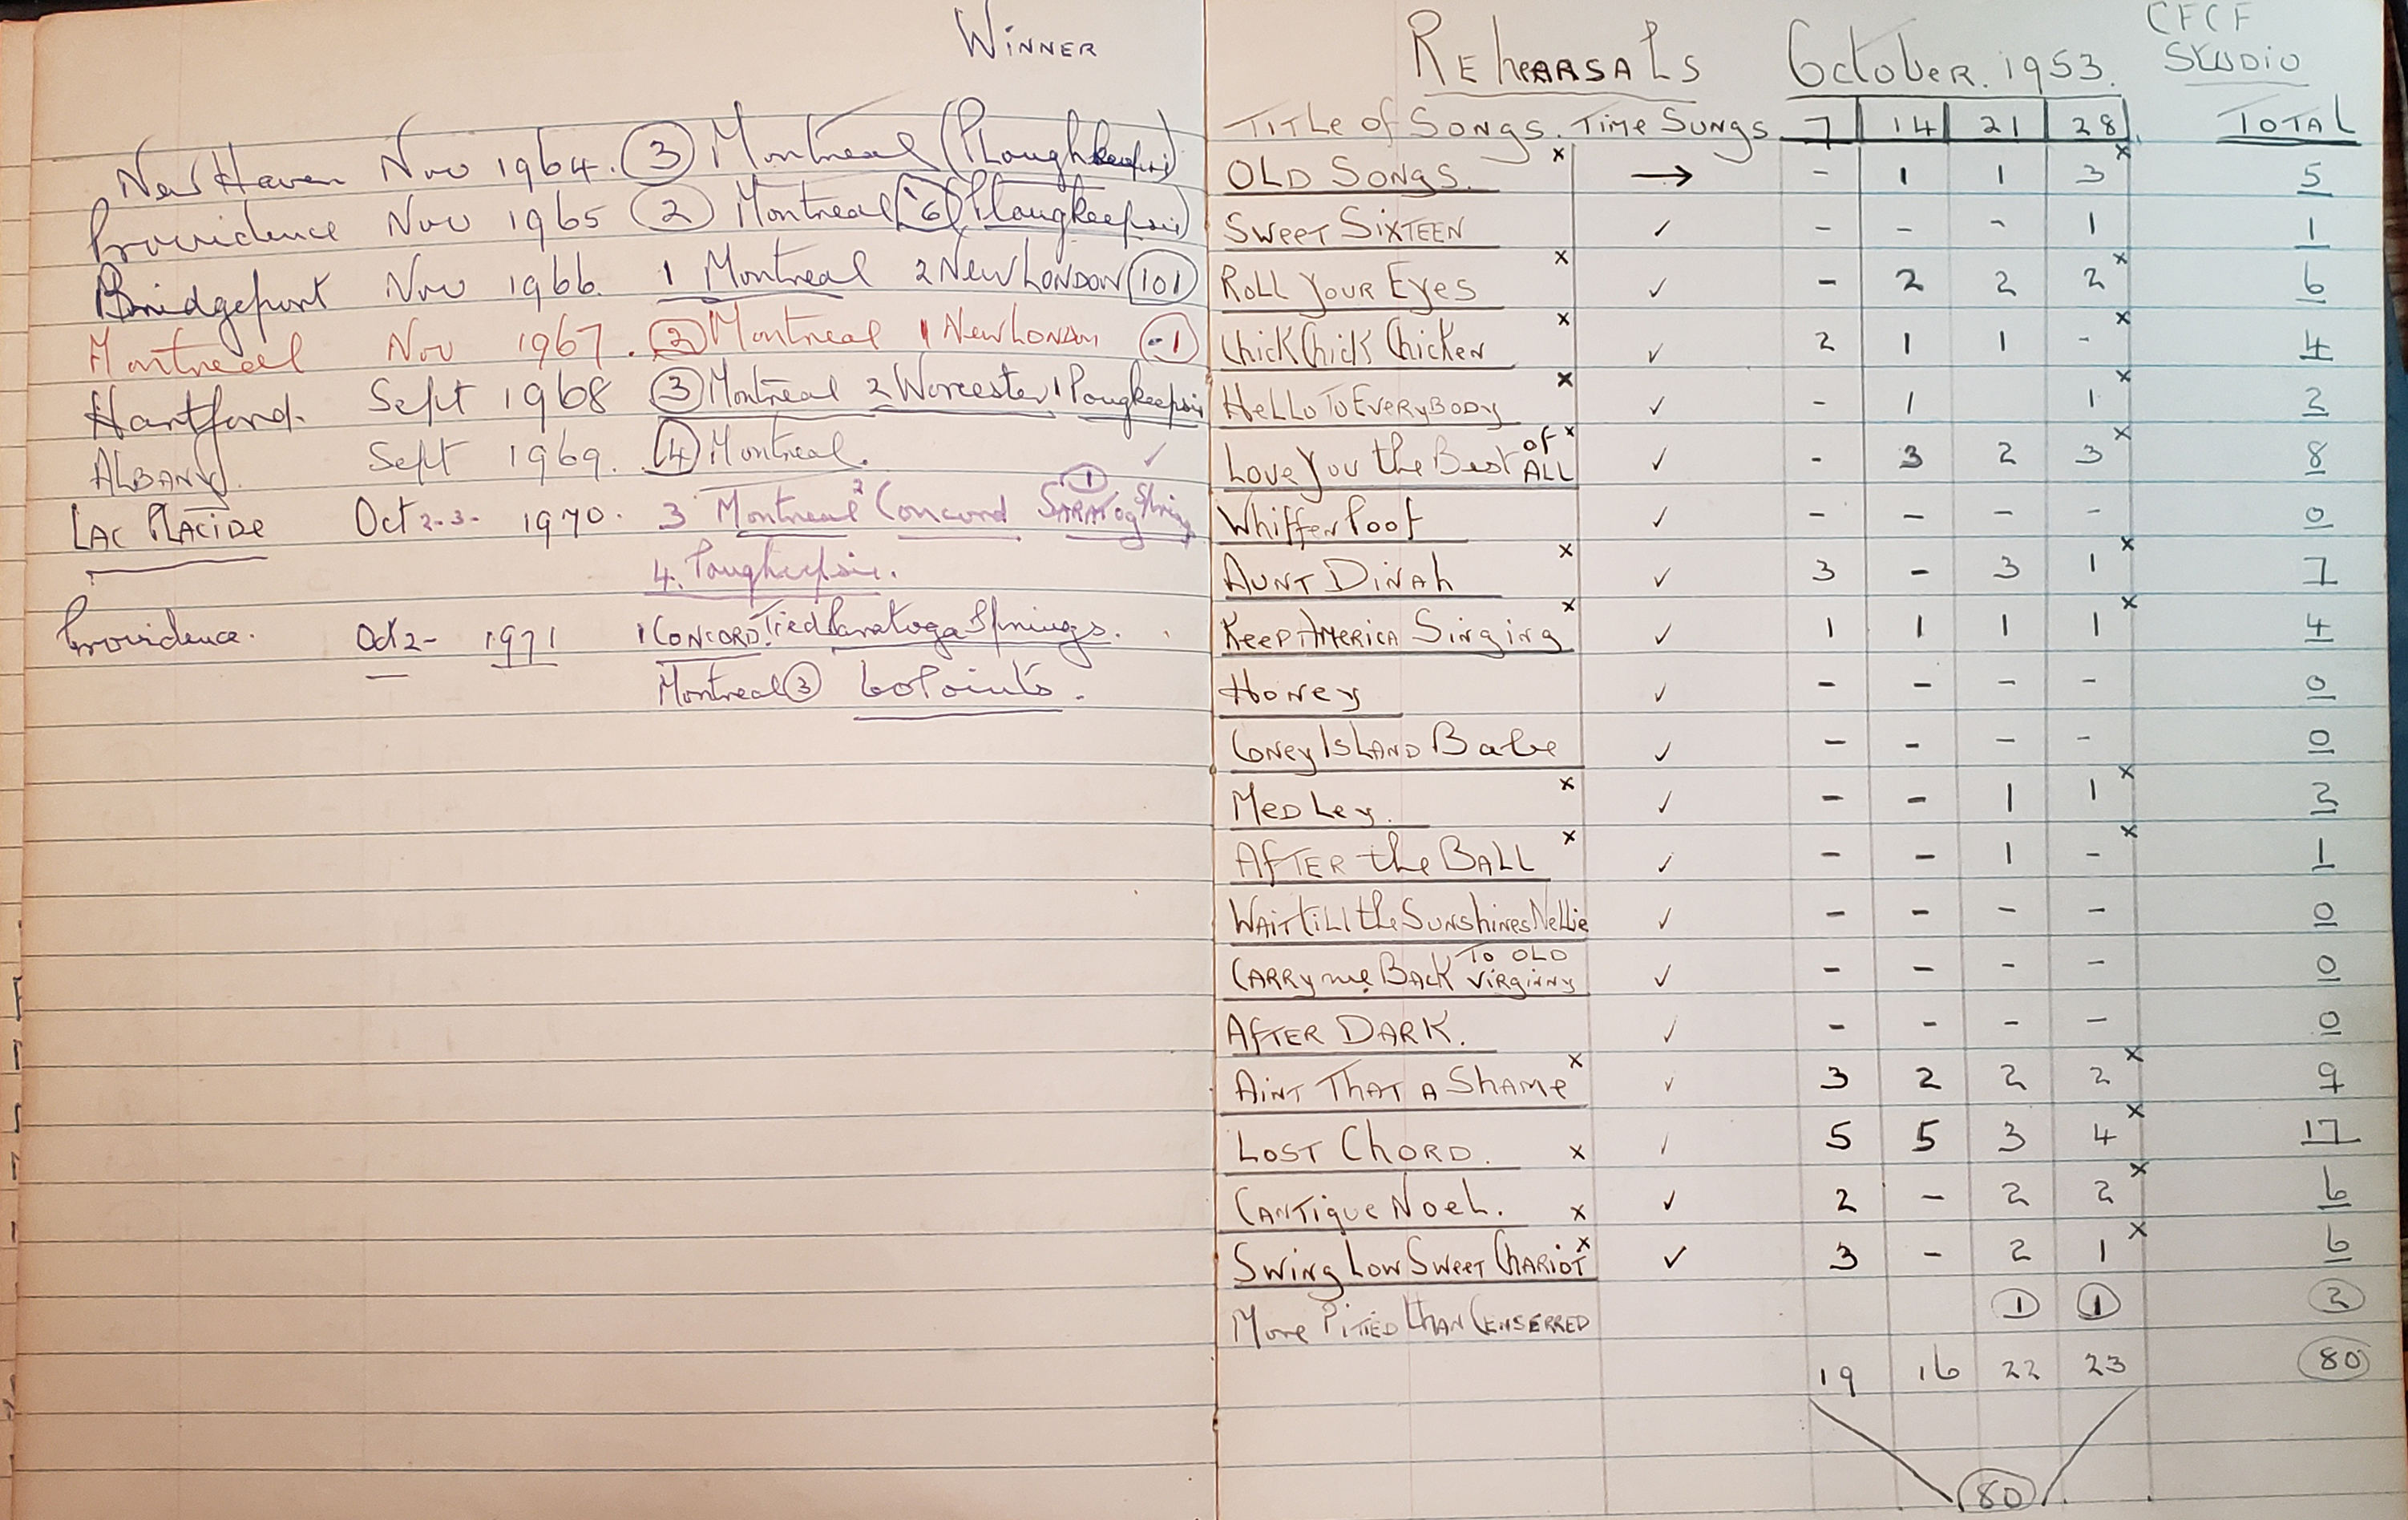 WINNER
New Haven Nov 1964. 3 Montreal (Ploughkeepsi)
Providence Nov 1965 2 Montreal 6 (Plougkeepsi)
Bridgeport Nov 1966. 1 Montreal 2 New London 101
Montreal Nov 1967. 2 Montreal 1 New London -1
Hartford. Sept 1968 3 Montreal 2 Worcester 1 Pougkeepsie
ALBANY. Sept 1969. 4 Montreal. ✓
LAC PLACIDE Oct 2-3- 1970. 3 Montreal 2 Concord 1 SARATOg Spring
4. Poughkeepsie.
Providence. Oct 2- 1971 1 CONCORD. Tied Saratoga Springs.
Montreal 3 60 Points.
CFCF
Rehearsals October. 1953. STUDIO
Title of Songs. Time Sungs. 7 14 21 28 TOTAL
OLD SONGS. x → - 1 1 3 x 5
SWEET SIXTEEN ✓ - - - 1 1
ROLL YOUR EYES x ✓ - 2 2 2 x 6
Chick Chick Chicken x ✓ 2 1 1 - x 4
Hello To Everybody x ✓ - 1 1 x 2
Love You the Best of ALL x ✓ - 3 2 3 x 8
Whiffen Poof ✓ - - - - 0
AUNT DINAH x ✓ 3 - 3 1 x 7
Keep America Singing x ✓ 1 1 1 1 x 4
Honey ✓ - - - - 0
Coney ISLAND Babe ✓ - - - - 0
MEDLEY. x ✓ - - 1 1 x 2
AFTER the BALL x ✓ - - 1 - x 1
WAIT till the Sunshines Nellie ✓ - - - - 0
CARRY me BACK TO OLD VIRGINNY ✓ - - - - 0
AFTER DARK. ✓ - - - - 0
AINT THAT A SHAME x ✓ 3 2 2 2 x 9
LOST CHORD. x ✓ 5 5 3 4 x 17
CANTIQUE NOEL. x ✓ 2 - 2 2 x 6
Swing Low Sweet CHARIOT x ✓ 3 - 2 1 x 6
More PITIED than CENSERRED 1 1 2
19 16 22 23 80
80